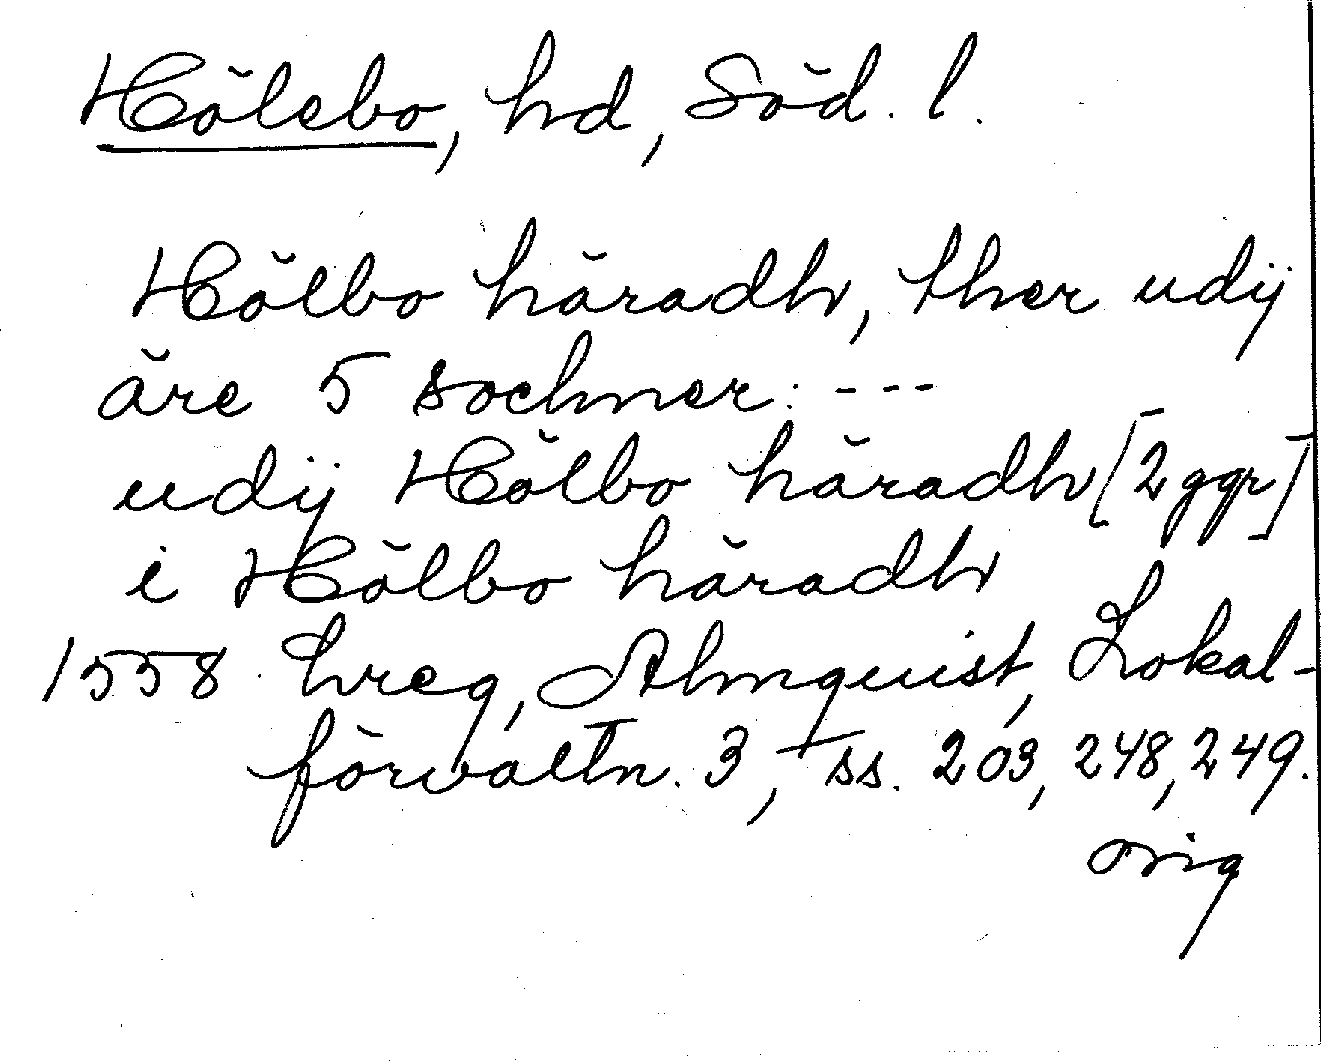 Hölebo, hd, Söd. l.
Hölbo häradh, ther udij
äre 5 sochner: ---
udij Hölbo häradh [2 ggr]
i Hölbo häradh
1558 hreg, Almquist, Lokal-
förvaltn. 3, ss. 203, 248, 249.
orig